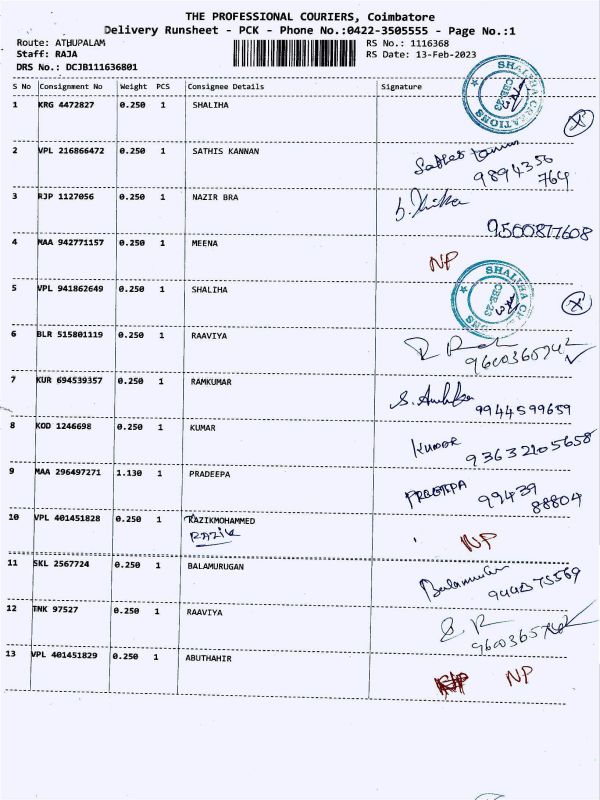 THE PROFESSIONAL COURIERS, Coimbatore
Delivery Runsheet - PCK - Phone No.:0422-3505555 - Page No.:1
Route: ATHUPALAM
Staff: RAJA
DRS No.: DCJB111636801
RS No.: 1116368
RS Date: 13-Feb-2023
S No Consignment No Weight PCS Consignee Details Signature
1 KRG 4472827 0.250 1 SHALIHA
SHALIHA CREATIONS
CBE-23
2 VPL 216866472 0.250 1 SATHIS KANNAN
9894356
764
3 RJP 1127056 0.250 1 NAZIR BRA
9500877608
4 MAA 942771157 0.250 1 MEENA NP
5 VPL 941862649 0.250 1 SHALIHA
SHALIHA
CBE-23
6 BLR 515801119 0.250 1 RAAVIYA
7 KUR 694539357 0.250 1 RAMKUMAR
9944599659
8 KOD 1246698 0.250 1 KUMAR Kumar
93632105658
9 MAA 296497271 1.130 1 PRADEEPA
99439
88804
10 VPL 401451828 0.250 1 RAZIKMOHAMMED
RAZIK NP
11 SKL 2567724 0.250 1 BALAMURUGAN
12 TNK 97527 0.250 1 RAAVIYA
13 VPL 401451829 0.250 1 ABUTHAHIR NP